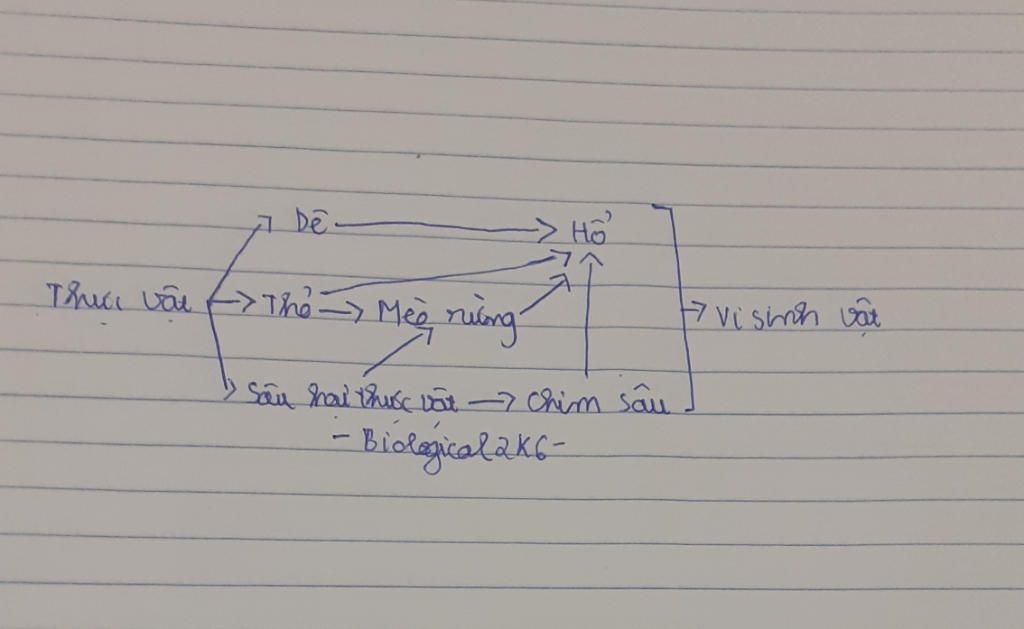 Dê Hổ
Thực vật Thỏ Mèo rừng Vi sinh vật
Sâu hại thực vật Chim sâu
- Biological2K6-